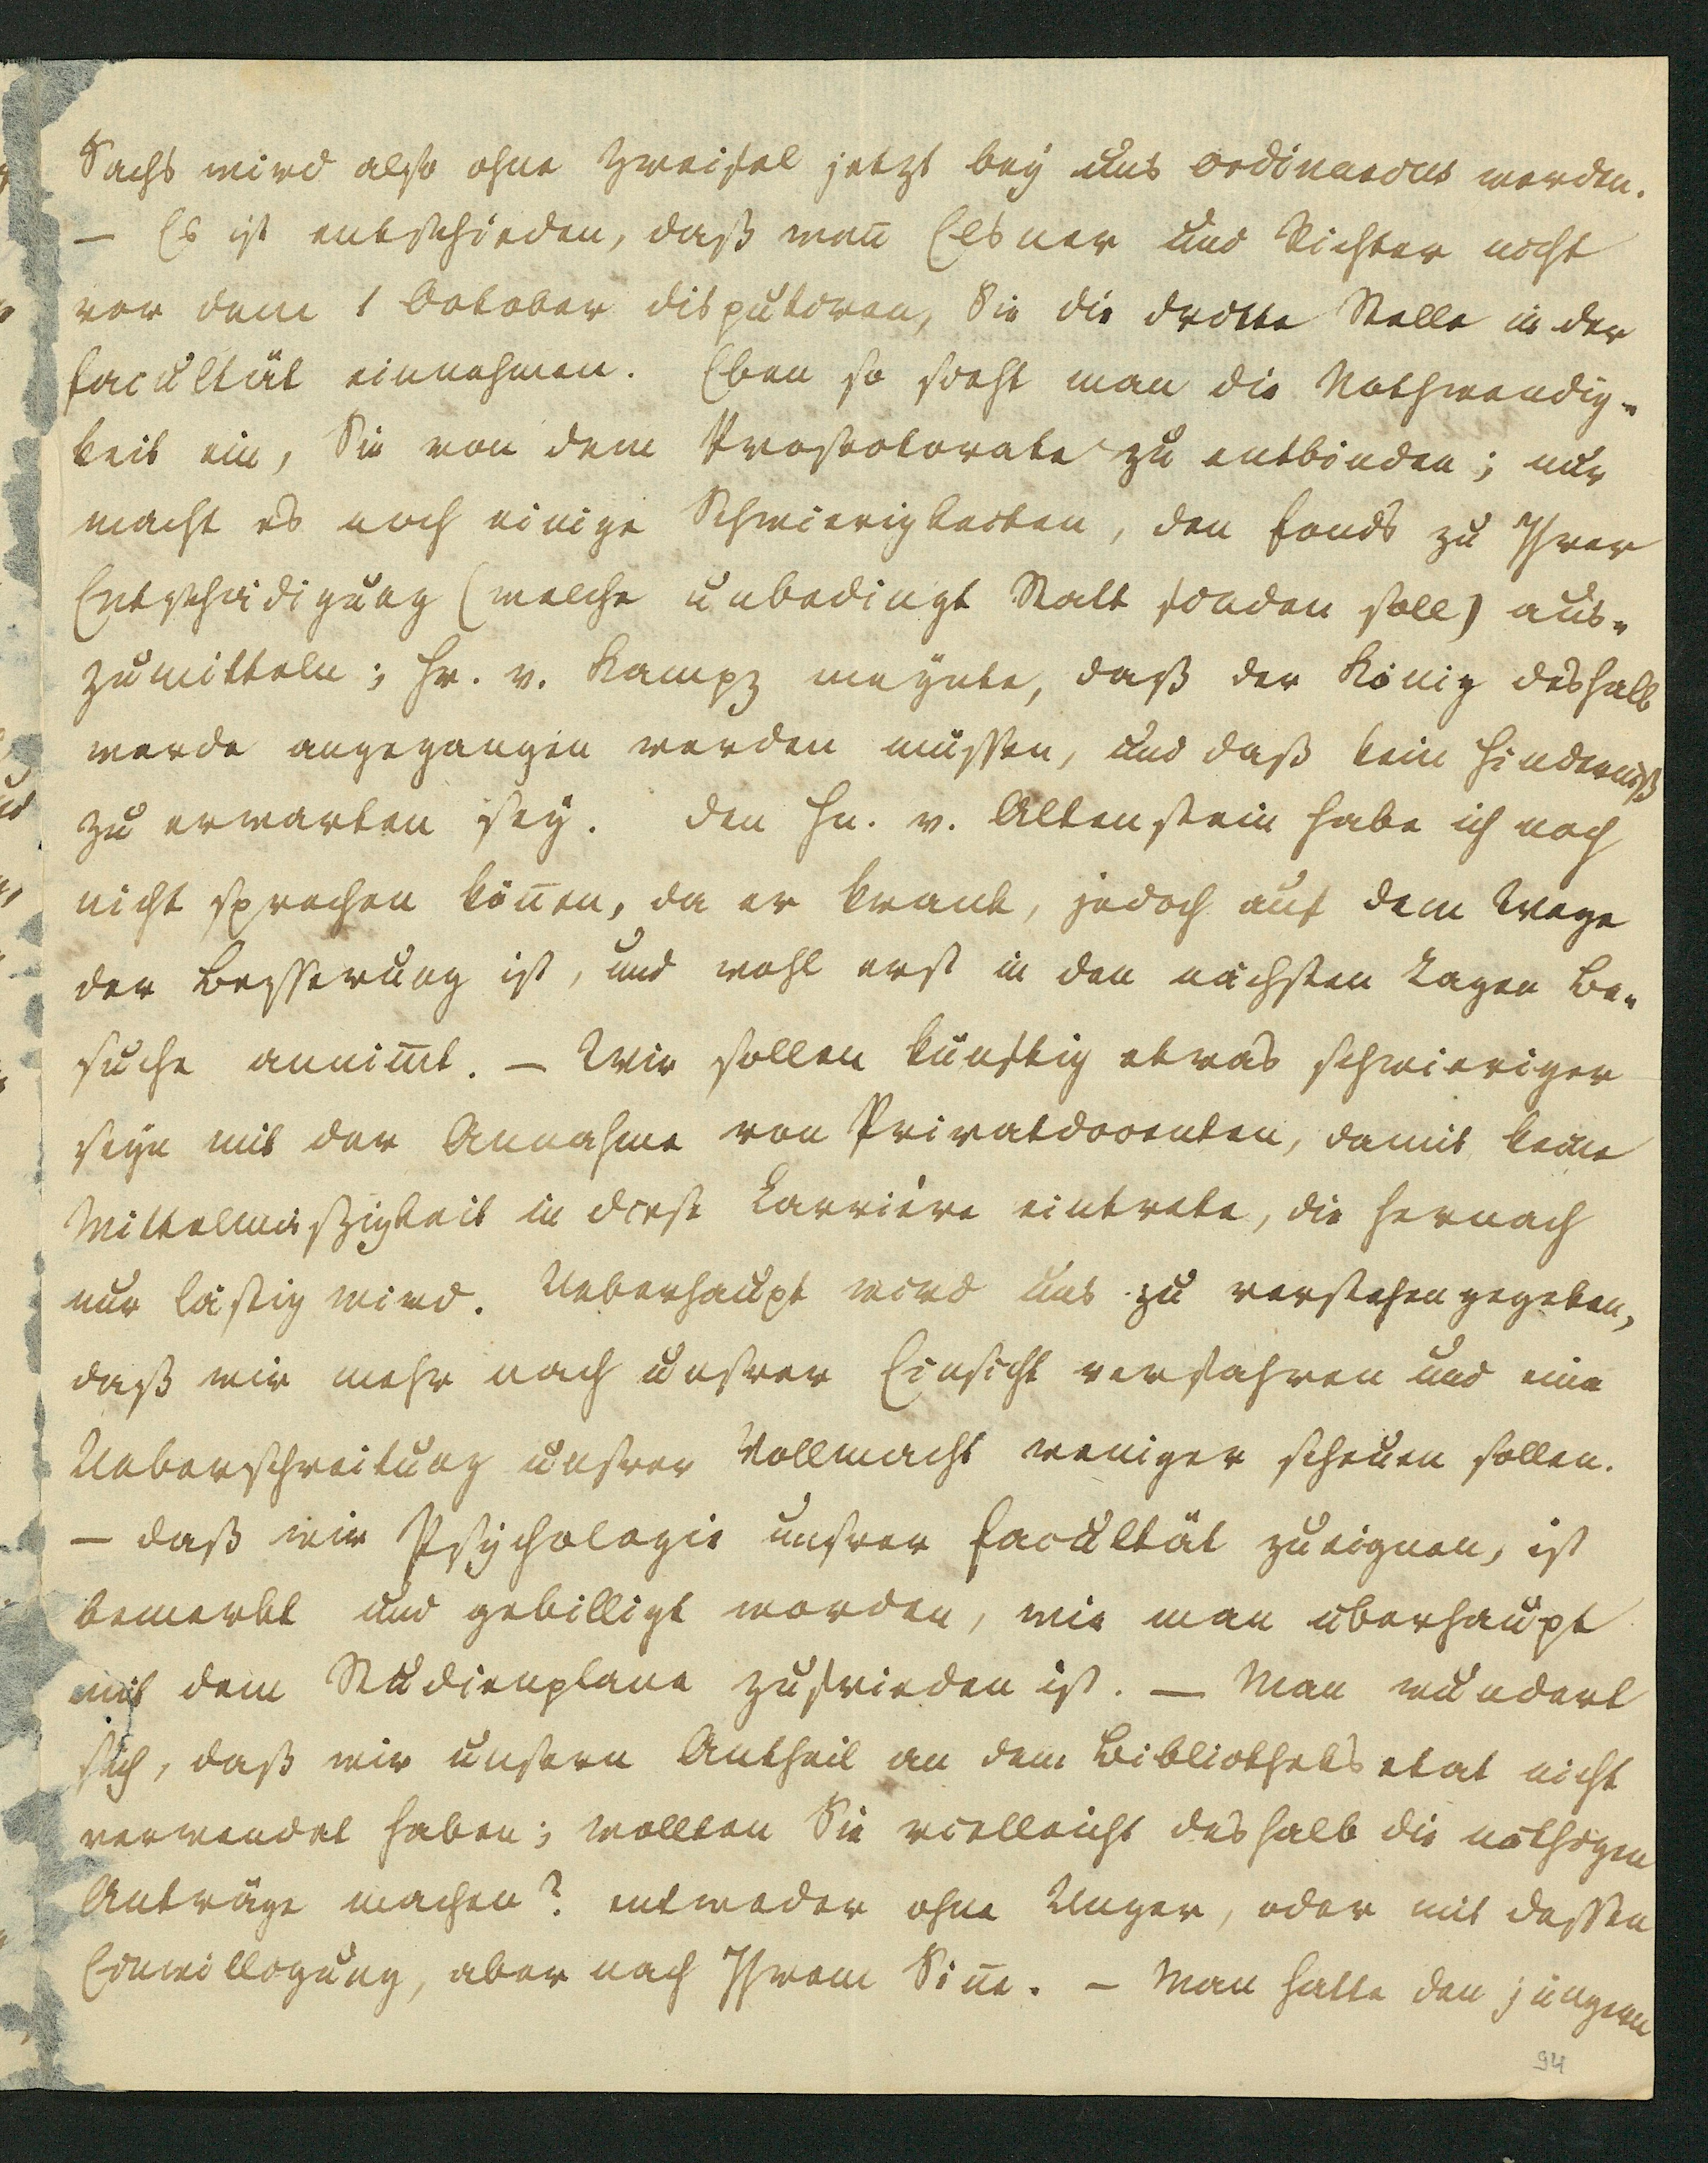 Sachs wird also ohne Zweifel jetzt bey uns ordinarius werden.
— Es ist entschieden, daß weñ Elsner und Richter nicht
vor dem 1 October disputiren, Sie die dritte Stelle in der
Facultät einnehmen. Eben so sieht man die Nothwendig-
keit ein, Sie von dem Prosectorate zu entbinden; nur
macht es noch einige Schwierigkeiten, den Fonds zu Ihrer
Entschädigung (welche unbedingt Statt finden soll) aus-
zumitteln; Hr. v. Kampz meynte, daß der König deshalb
werde angegangen werden müssen, und daß kein Hinderniß
zu erwarten sey. Den Hn. v. Altenstein habe ich noch
nicht sprechen köñen, da er krank, jedoch auf dem Wege
der Besserung ist, und wohl erst in den nächsten Tagen Be-
suche annim̃t. — Wir sollen künftig etwas schwieriger
seyn mit der Annahme von Privatdocenten, damit keine
Mittelmäszigkeit in diese Carrière eintrete, die hernach
nur lästig wird. Ueberhaupt wird uns zu verstehen gegeben,
daß wir mehr nach unsrer Einsicht verfahren und eine
Ueberschreitung unsrer Vollmacht weniger scheuen sollen.
— Daß wir Psychologie unsrer Facultät zueignen, ist
bemerkt und gebilligt worden, wie man überhaupt
mit dem Studienplane zufrieden ist. — Man wundert
sich, daß wir unsern Antheil an dem Bibliotheksetat nicht
verwendet haben; wollten Sie vielleicht deshalb die nöthigen
Anträge machen? entweder ohne Unger, oder mit dessen
Einwilligung, aber nach Ihrem Siñe. — Man hatte den jüngern
94